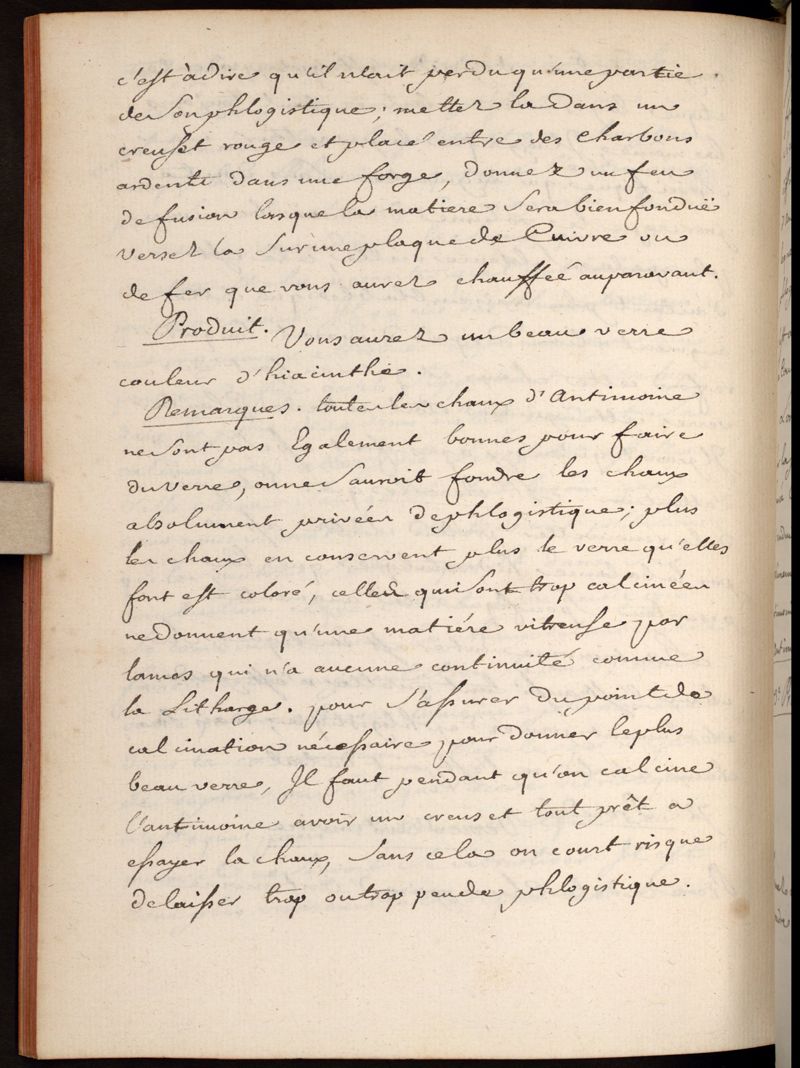 c'est à dire qu'il n'ait perdu qu'une partie
de Son phlogistique; mettez la dans un
creuset rouge et placé entre des charbons
ardents dans une forge, donnez un feu
de fusion lorsque la matiere Sera bien fonduë
versez la Sur une plaque de Cuivre ou
de fer que vous aurez chauffeé auparavant.
Produit. Vous aurez un beau verre
couleur d'hiacinthe.
Remarques. toutes les chaux d'Antimoine
ne Sont pas Egalement bonnes pour faire
du verre, on ne Sauroit fondre les chaux
absolument privées de phlogistique; plus
les chaux en conservent plus le verre qu'elles
font est coloré, celles qui Sont trop calcinées
ne donnent qu'une matiére vitreuse par
lames qui n'a aucune continuité comme
la Litharge. pour S'assurer du point de
calcination nécessaire pour donner le plus
beau verre, Il faut pendant qu'on calcine
l'antimoine avoir un creuset tout prêt a
essayer la chaux, Sans cela on court risque
de laisser trop ou trop peu de phlogistique.